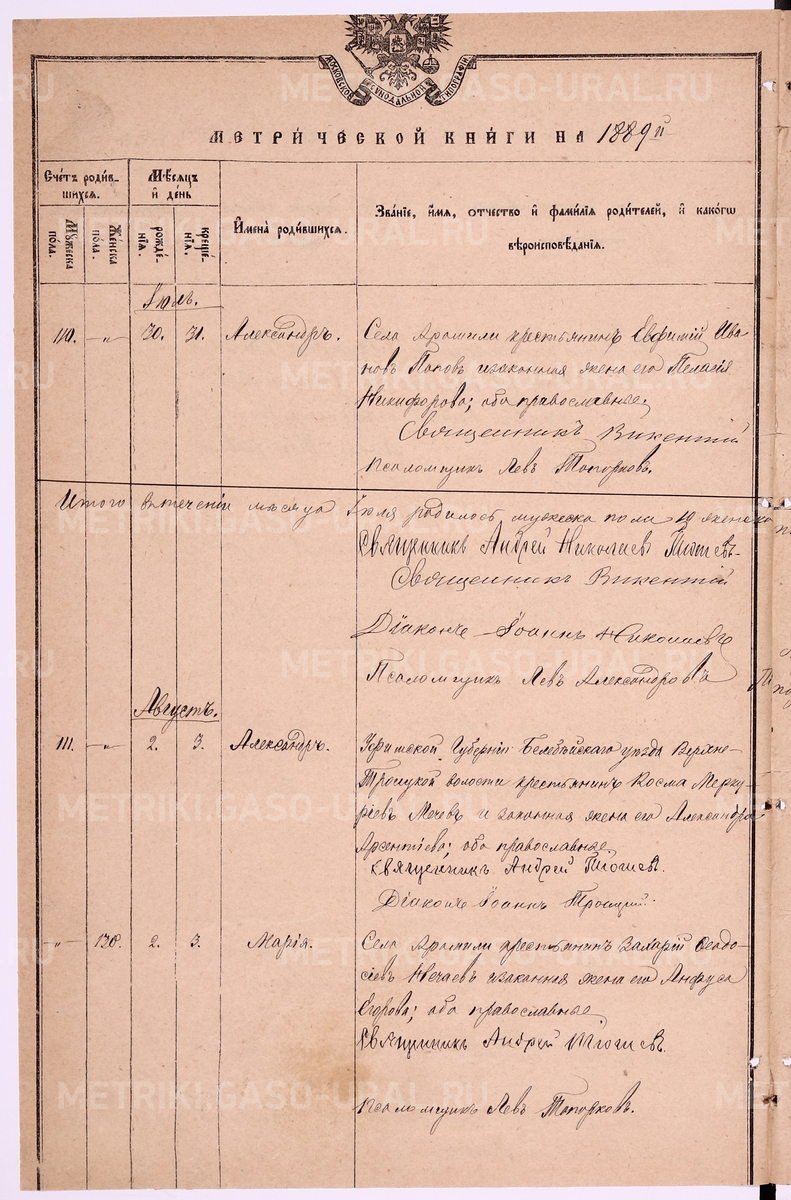 МОСКОВСКОЙ СѴНОДАЛЬНОЙ ТИПОГРАФІИ
МЕТРИ́ЧЕСКОЙ КНИ́ГИ НА 1889й
Сче́тъ роди́в-
шихся.
Мꙋ́жеска
по́ла.
Же́нска
по́ла.
Мѣ́сяцъ
и҆ де́нь
рожде́-
нїѧ.
креще́-
нїѧ.
И҆мена̀ роди́вшихся.
Зва́нїе, и҆́мѧ, о҆́тчество и҆ фами́лїѧ роди́телей, и҆ како́гѡ
вѣроисповѣ́данїѧ.
Іюль.
110. —„— 30. 31. Александръ. Села Арамили крестьянинъ Евфимій Ива-
новъ Поповъ и законная жена его Пелагія
Никифорова; оба православные.
Священникъ Викентій
Псаломщикъ Левъ Топорковъ.
Итого въ теченіи мѣсяца Іюля родилось мужеска пола 19 женска
Священникъ Андрей Николаевъ
Священникъ Викентій
Діаконъ Іоаннъ Николаевъ
Псаломщикъ Левъ Александровъ
Августъ.
111. —„— 2. 3. Александръ. Уфимской Губерніи Белебейскаго уѣзда Верхне-
Троицкой волости крестьянинъ Косма Мерку-
ріевъ Мечевъ и законная жена его Александра
Арсентіева; оба православные.
Священникъ Андрей
Діаконъ Іоаннъ Троицкій.
—„— 138. 2. 3. Марія. Села Арамили крестьянинъ Захарій Ѳеодо-
сіевъ Нечаевъ и законная жена его Анфуса
Егорова; оба православные.
Священникъ Андрей
Псаломщикъ Левъ Топорковъ.
METRIKI.GASO-URAL.RU